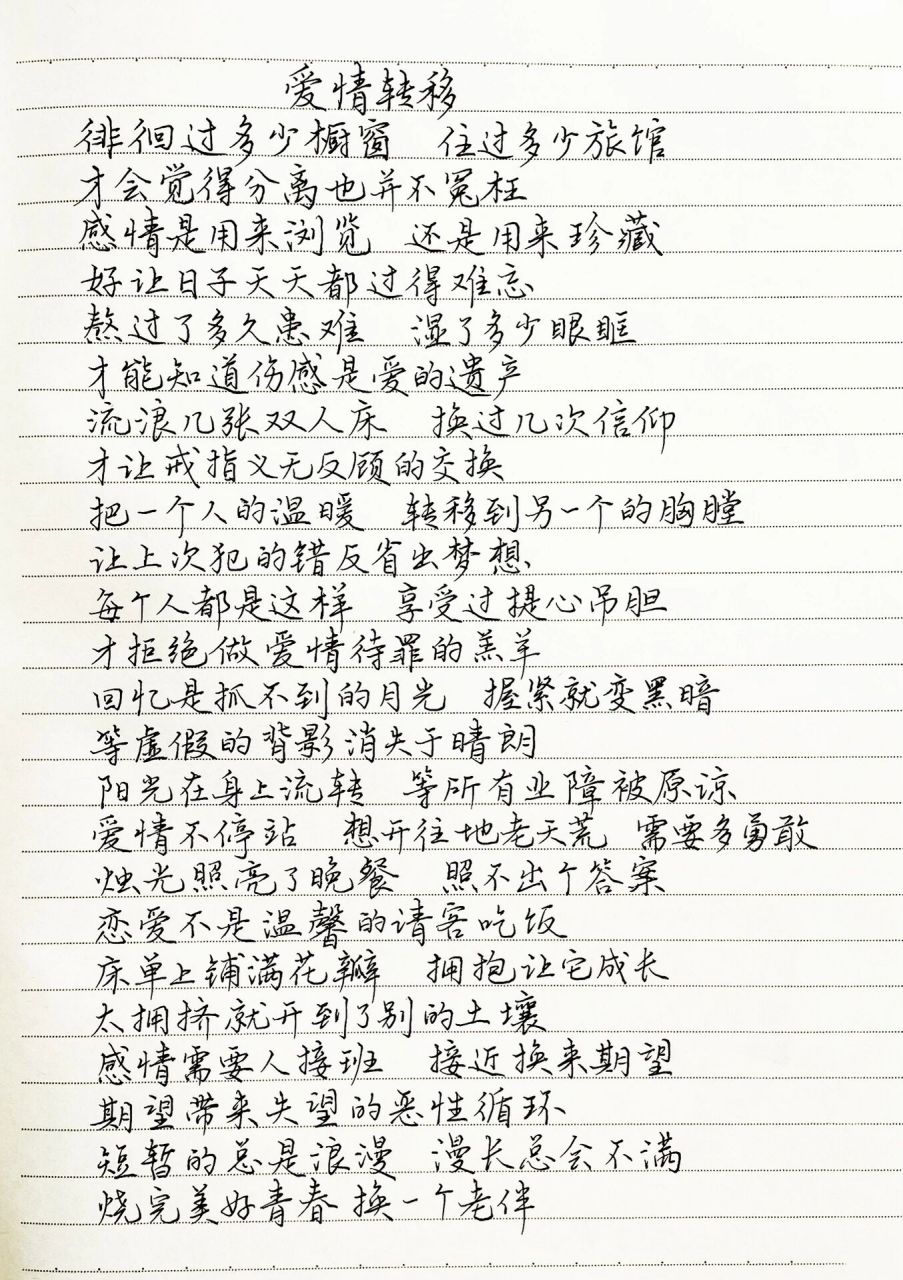 爱情转移
徘徊过多少橱窗 住过多少旅馆
才会觉得分离也并不冤枉
感情是用来浏览 还是用来珍藏
好让日子天天都过得难忘
熬过了多久患难 湿了多少眼眶
才能知道伤感是爱的遗产
流浪几张双人床 换过几次信仰
才让戒指义无反顾的交换
把一个人的温暖 转移到另一个的胸膛
让上次犯的错反省出梦想
每个人都是这样 享受过提心吊胆
才拒绝做爱情待罪的羔羊
回忆是抓不到的月光 握紧就变黑暗
等虚假的背影消失于晴朗
阳光在身上流转 等所有业障被原谅
爱情不停站 想开往地老天荒 需要多勇敢
烛光照亮了晚餐 照不出个答案
恋爱不是温馨的请客吃饭
床单上铺满花瓣 拥抱让它成长
太拥挤就开到了别的土壤
感情需要人接班 接近换来期望
期望带来失望的恶性循环
短暂的总是浪漫 漫长总会不满
烧完美好青春换一个老伴